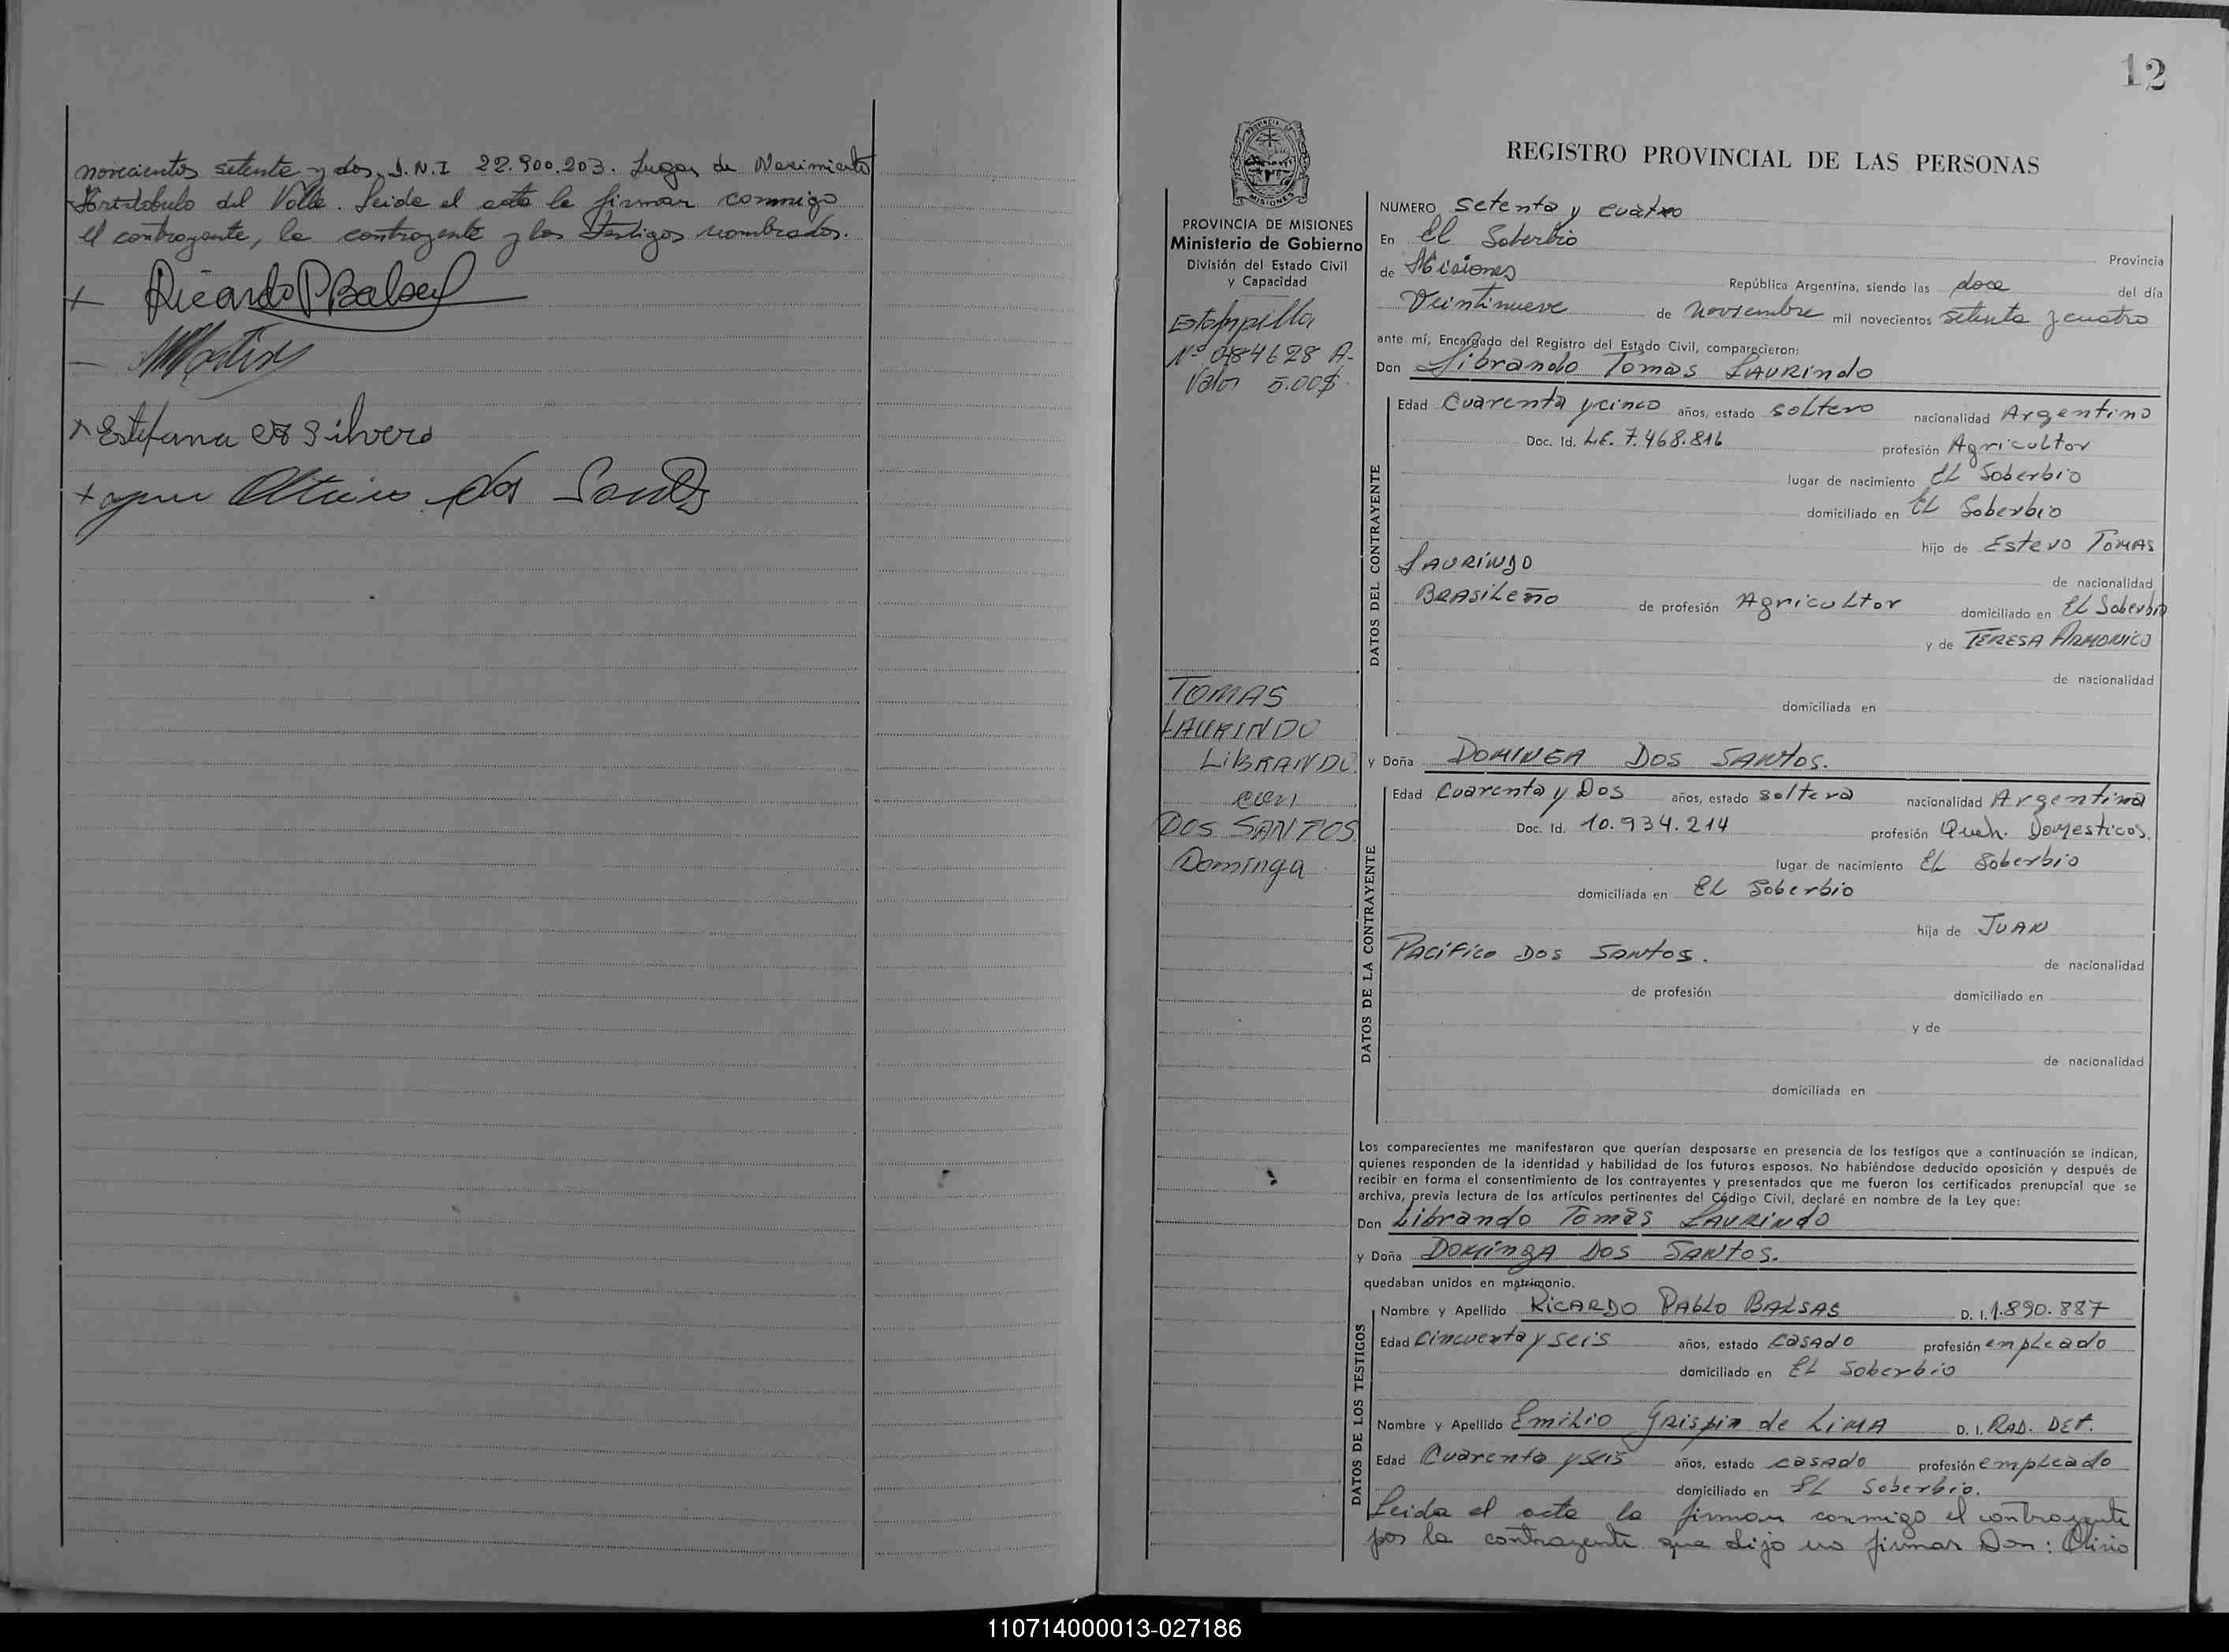 novecientos setente y dos, D.N.I 22.900.203. Lugar de Nacimiento
Aristobulo del Valle. Leide el acta la firman conmigo
el contrayente, la contrayente y los testigos nombrados.
Ricardo P Balsas
Estefana
dos Santos
12
REGISTRO PROVINCIAL DE LAS PERSONAS
PROVINCIA DE MISIONES
PROVINCIA DE MISIONES
Ministerio de Gobierno
División del Estado Civil
y Capacidad
Estampilla
Nº 0484628 A-
Valor 5.00$.
TOMAS
LAURINDO
LIBRANDO
con
DOS SANTOS
Dominga
NUMERO Setenta y cuatro
En El Soberbio
Provincia
de Misiones República Argentina, siendo las doce del día
Veintinueve de Noviembre mil novecientos setenta y cuatro
ante mí, Encargado del Registro del Estado Civil, comparecieron:
Don Librando Tomas LAURINdo
DATOS DEL CONTRAYENTE
Edad Cuarenta y cinco años, estado soltero nacionalidad Argentino
Doc. Id. L.E. 7.468.816 profesión Agricultor
lugar de nacimiento EL Soberbio
domiciliado en EL Soberbio
hijo de Estevo TOMAS
LAURINDO de nacionalidad
BRASILEÑO de profesión Agricultor domiciliado en EL Soberbio
y de TERESA ARMONICO
de nacionalidad
domiciliada en
y Doña DOMINGA DOS SANTOS.
DATOS DE LA CONTRAYENTE
Edad Cuarenta y Dos años, estado soltera nacionalidad Argentina
Doc. Id. 10.934.214 profesión Queh. Domesticos.
lugar de nacimiento EL Soberbio
domiciliada en EL Soberbio
hija de JUAN
PACIFICO DOS SANTOS. de nacionalidad
de profesión domiciliado en
y de
de nacionalidad
domiciliada en
Los comparecientes me manifestaron que querían desposarse en presencia de los testigos que a continuación se indican,
quienes responden de la identidad y habilidad de los futuros esposos. No habiéndose deducido oposición y después de
recibir en forma el consentimiento de los contrayentes y presentados que me fueron los certificados prenupcial que se
archiva, previa lectura de los artículos pertinentes del Código Civil, declaré en nombre de la Ley que:
Don Librando Tomàs LAURINdO
y Doña DOMINGA DOS SANTOS.
quedaban unidos en matrimonio.
DATOS DE LOS TESTIGOS
Nombre y Apellido RICARDO PABLO BALSAS D. I. 1.890.887
Edad Cincuenta y seis años, estado casado profesión empleado
domiciliado en EL Soberbio
Nombre y Apellido Emilio Grispin de LIMA D. I. RAD. DEF.
Edad Cuarenta y seis años, estado casado profesión empleado
domiciliado en EL Soberbio.
Leida el acta la firman conmigo el contrayente
por la contrayente que dijo no firmar Don: Olirio
110714000013-027186